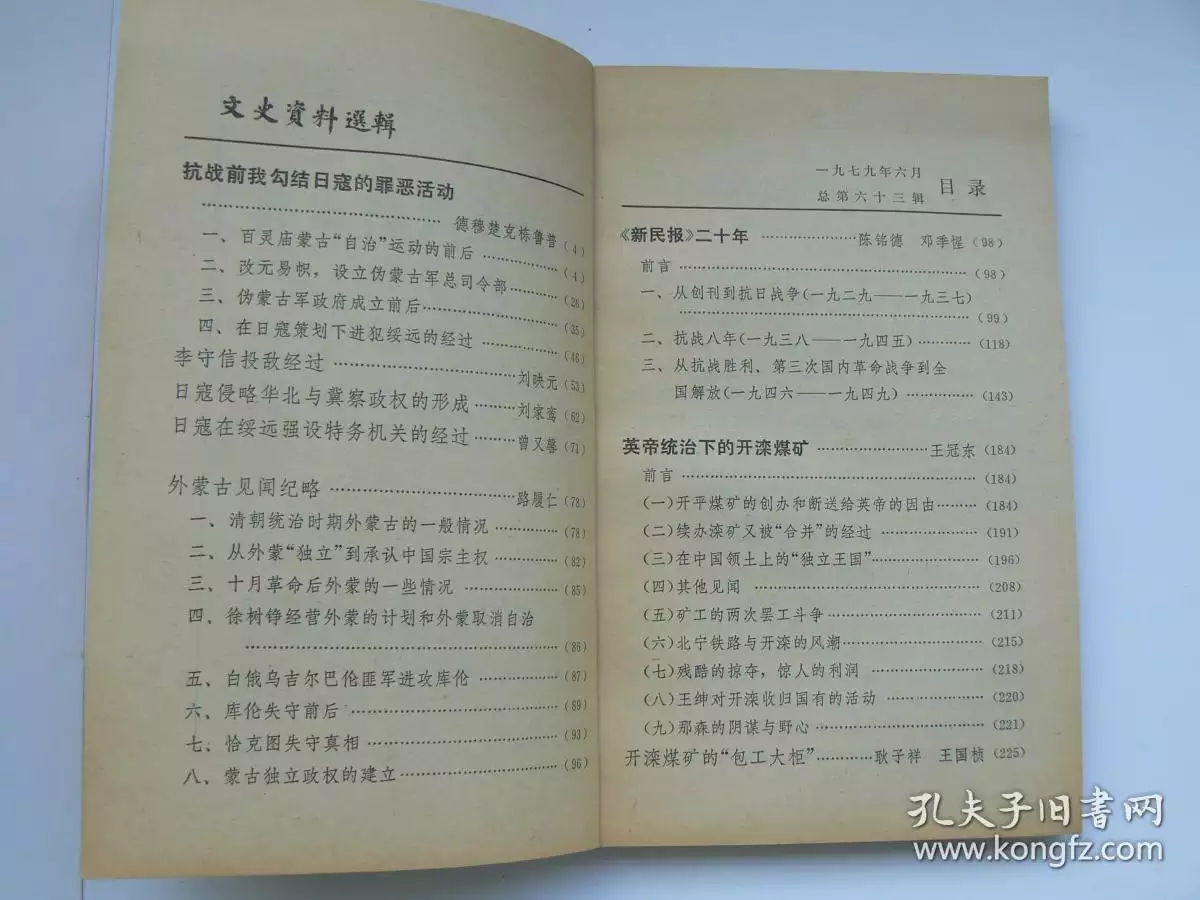 文史資料選輯
抗战前我勾结日寇的罪恶活动
……………………………德穆楚克栋鲁普(4)
一、百灵庙蒙古“自治”运动的前后…………(4)
二、改元易帜，设立伪蒙古军总司令部………(26)
三、伪蒙古军政府成立前后……………………(35)
四、在日寇策划下进犯绥远的经过……………(46)
李守信投敌经过……………………刘映元(53)
日寇侵略华北与冀察政权的形成………刘家鸾(62)
日寇在绥远强设特务机关的经过………曾又馨(71)
外蒙古见闻纪略……………………路履仁(78)
一、清朝统治时期外蒙古的一般情况…………(78)
二、从外蒙“独立”到承认中国宗主权…………(82)
三、十月革命后外蒙的一些情况………………(85)
四、徐树铮经营外蒙的计划和外蒙取消自治
……………………………………………(86)
五、白俄乌吉尔巴伦匪军进攻库伦……………(87)
六、库伦失守前后………………………………(89)
七、恰克图失守真相……………………………(93)
八、蒙古独立政权的建立………………………(96)
一九七九年六月
总第六十三辑
目录
《新民报》二十年…………………陈铭德 邓季惺(98)
前言………………………………………………(98)
一、从创刊到抗日战争(一九二九——一九三七)
……………………………………………(99)
二、抗战八年(一九三八——一九四五)…………(118)
三、从抗战胜利、第三次国内革命战争到全
国解放(一九四六——一九四九)……………(143)
英帝统治下的开滦煤矿……………………王冠东(184)
前言………………………………………………(184)
(一)开平煤矿的创办和断送给英帝的因由……(184)
(二)续办滦矿又被“合并”的经过………………(191)
(三)在中国领土上的“独立王国”………………(196)
(四)其他见闻……………………………………(208)
(五)矿工的两次罢工斗争………………………(211)
(六)北宁铁路与开滦的风潮……………………(215)
(七)残酷的掠夺，惊人的利润…………………(218)
(八)王绅对开滦收归国有的活动………………(220)
(九)那森的阴谋与野心…………………………(221)
开滦煤矿的“包工大柜”…………耿子祥 王国桢(225)
孔夫子旧书网
www.kongfz.com